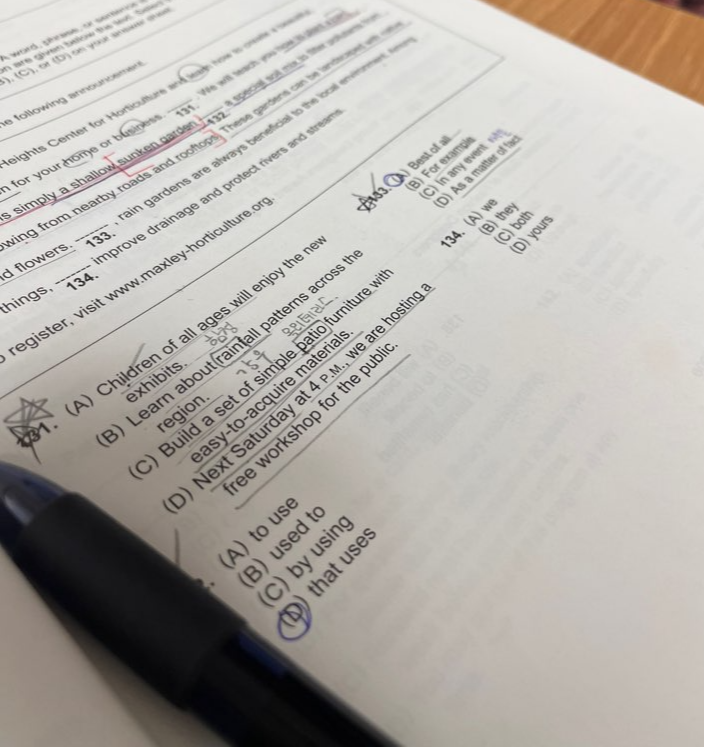 A word, phrase, or sentence
are given below the text. Select
(C), or (D) on your answer sheet.
following announcement.
Heights Center for Horticulture and learn how to create a beautiful
for your home or business. 131. We will teach you how to
is simply a shallow sunken garden 132. a special soil mix
from nearby roads and rooftops. These gardens can be landscaped with native
flowers. 133. , rain gardens are always beneficial to the local environment. Among
things, 134. improve drainage and protect rivers and streams.
register, visit www.maxley-horticulture.org.
131. (A) Children of all ages will enjoy the new
exhibits.
(B) Learn about rainfall patterns across the
region.
(C) Build a set of simple patio furniture with
easy-to-acquire materials.
(D) Next Saturday at 4 P.M., we are hosting a
free workshop for the public.
(A) to use
(B) used to
(C) by using
(D) that uses
133. (A) Best of all
(B) For example
(C) In any event
(D) As a matter of fact
134. (A) we
(B) they
(C) both
(D) yours